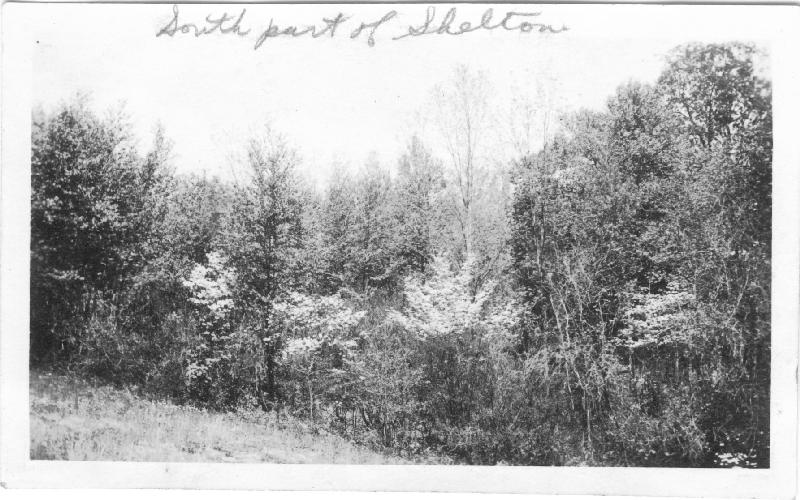 South part of Shelton